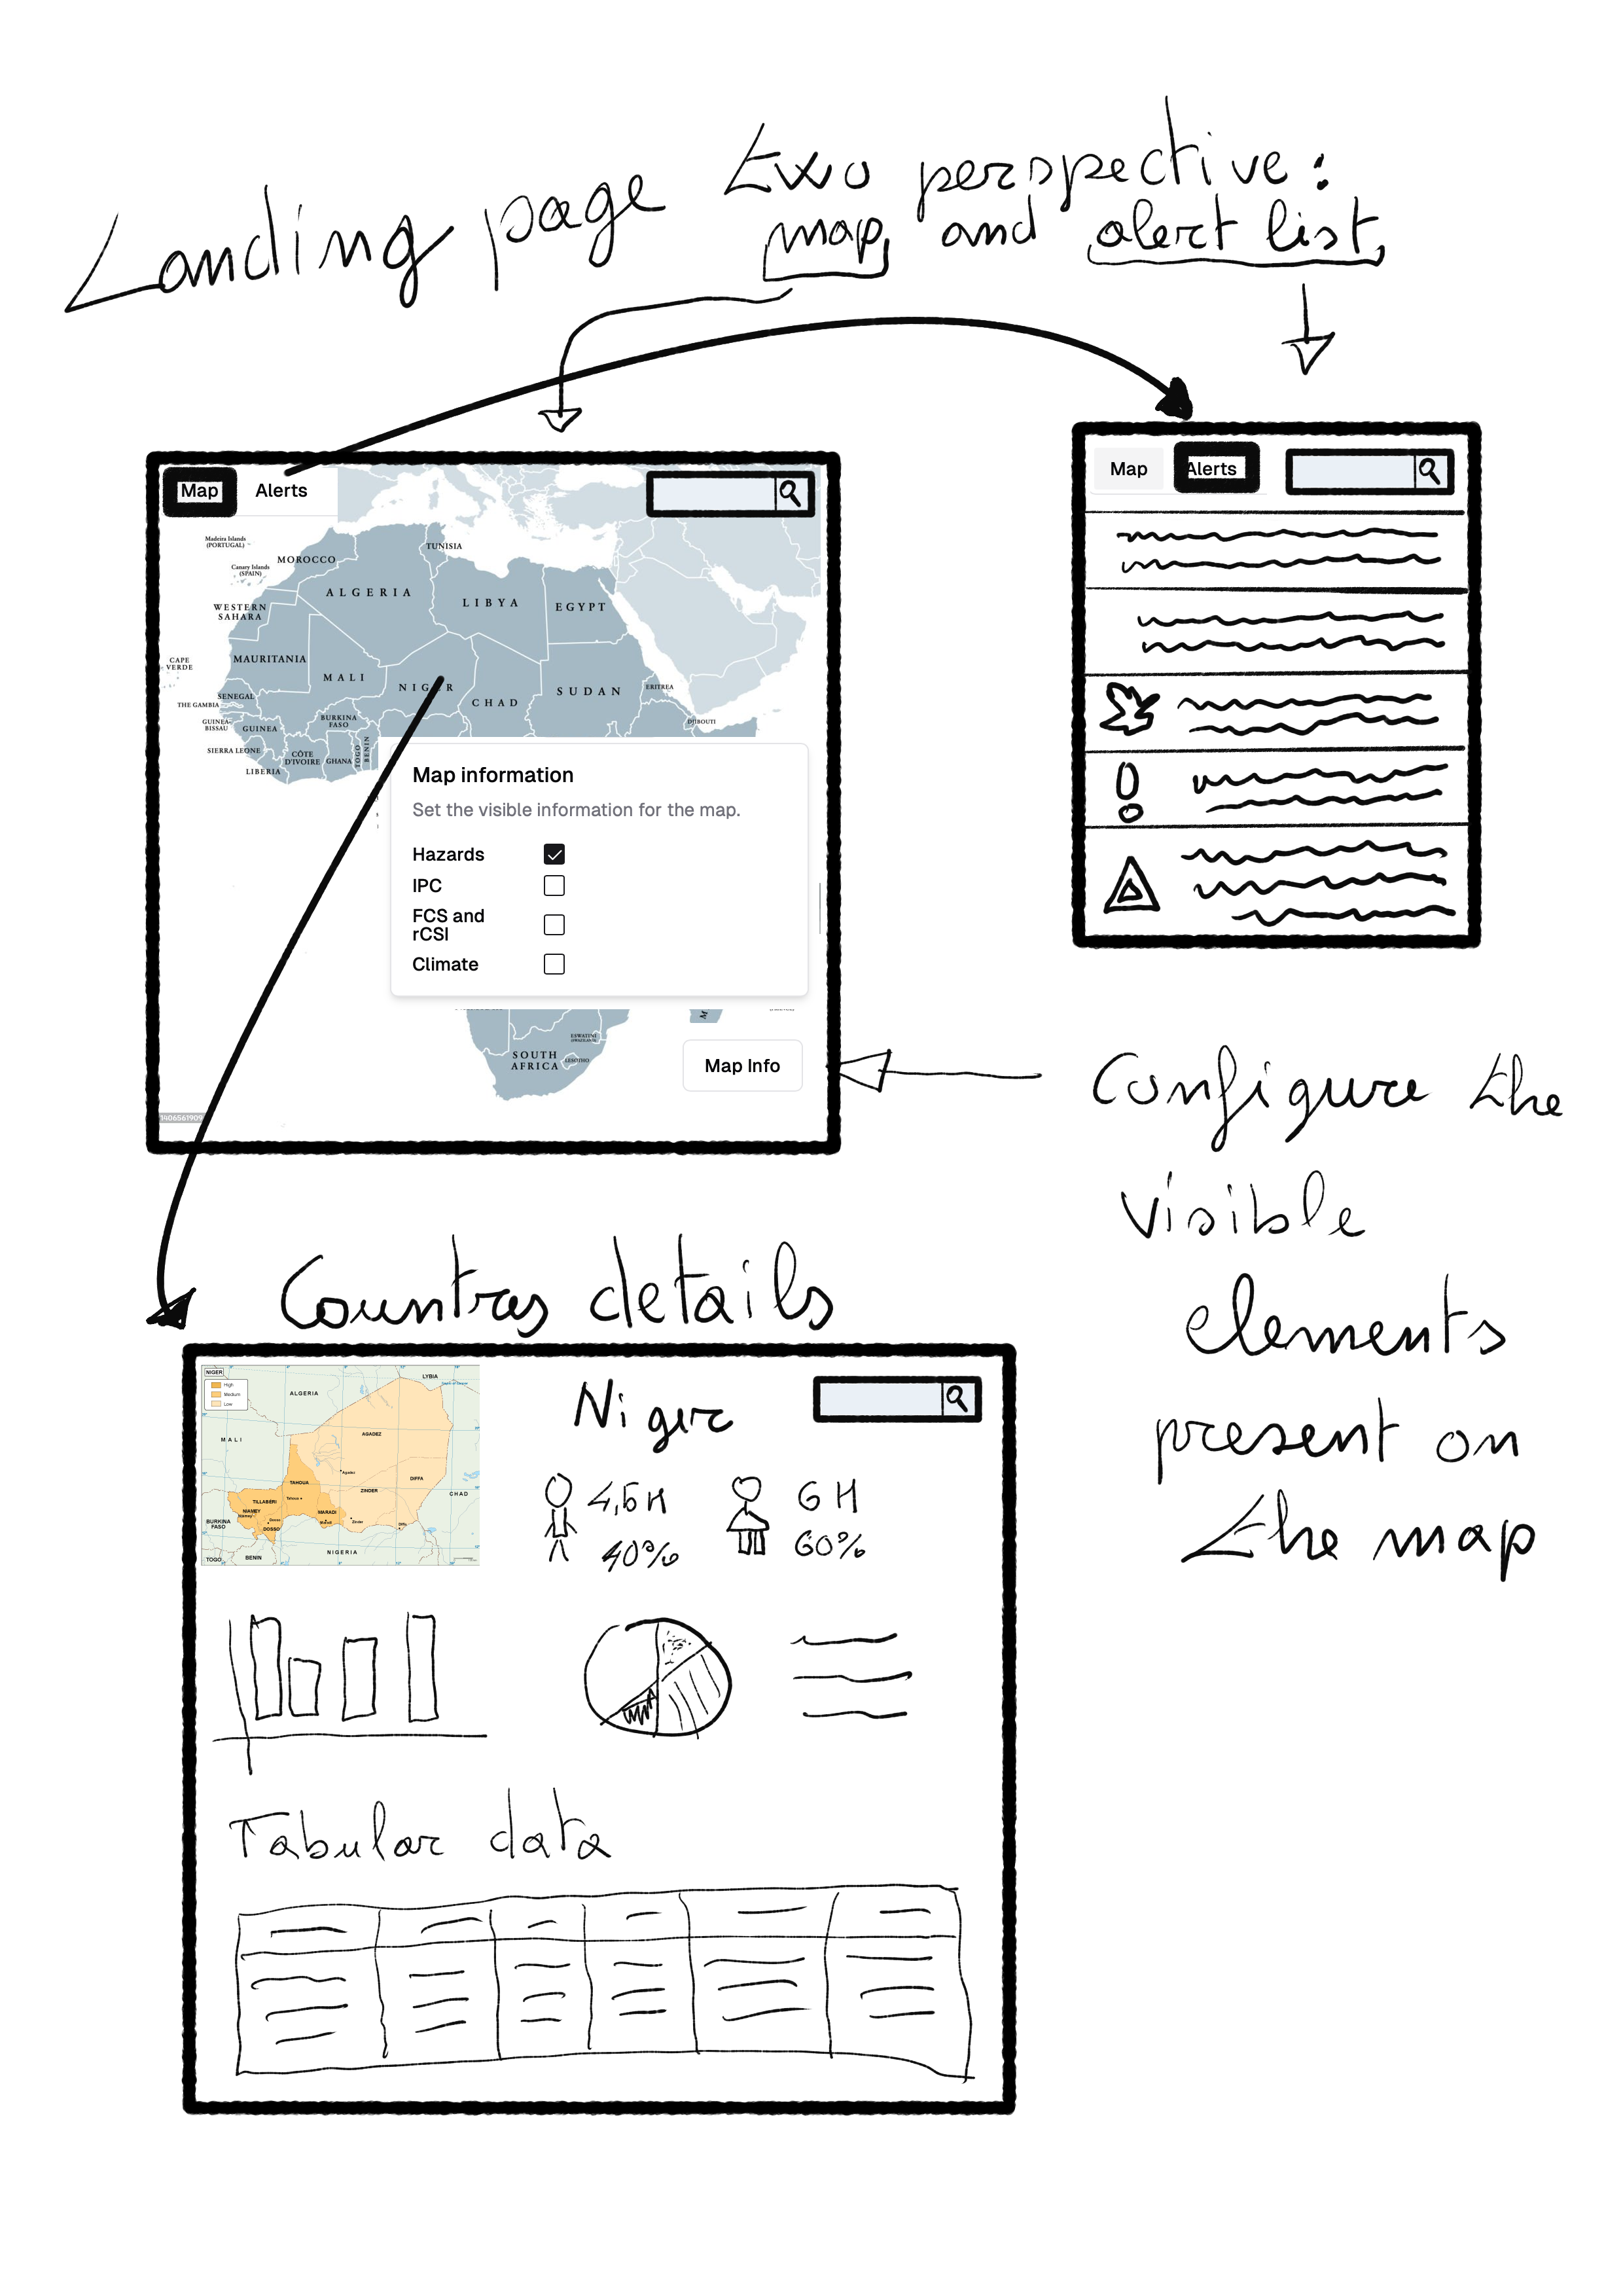 Landing page
two perspective:
map and alert list
Map
Alerts
Madeira Islands
(PORTUGAL)
Canary Islands
(SPAIN)
MOROCCO
TUNISIA
ALGERIA
LIBYA
EGYPT
WESTERN
SAHARA
CAPE
VERDE
MAURITANIA
MALI
NIGER
CHAD
SUDAN
ERITREA
SENEGAL
THE GAMBIA
GUINEA-
BISSAU
GUINEA
BURKINA
FASO
DJIBOUTI
SIERRA LEONE
CÔTE
D'IVOIRE
GHANA
TOGO
BENIN
LIBERIA
Map information
Set the visible information for the map.
Hazards
IPC
FCS and
rCSI
Climate
ESWATINI
(SWAZILAND)
LESOTHO
SOUTH
AFRICA
Map Info
1406561909
Map
Alerts
Configure the
visible
elements
present on
the map
Countras details
NIGER
High
Medium
Low
ALGERIA
LYBIA
MALI
AGADEZ
Agadez
TAHOUA
Tahoua
DIFFA
ZINDER
CHAD
TILLABERI
NIAMEY
Niamey
MARADI
Maradi
Zinder
Diffa
DOSSO
Dosso
BURKINA
FASO
NIGERIA
BENIN
TOGO
Niger
4,5M
40%
6 M
60%
Tabular data